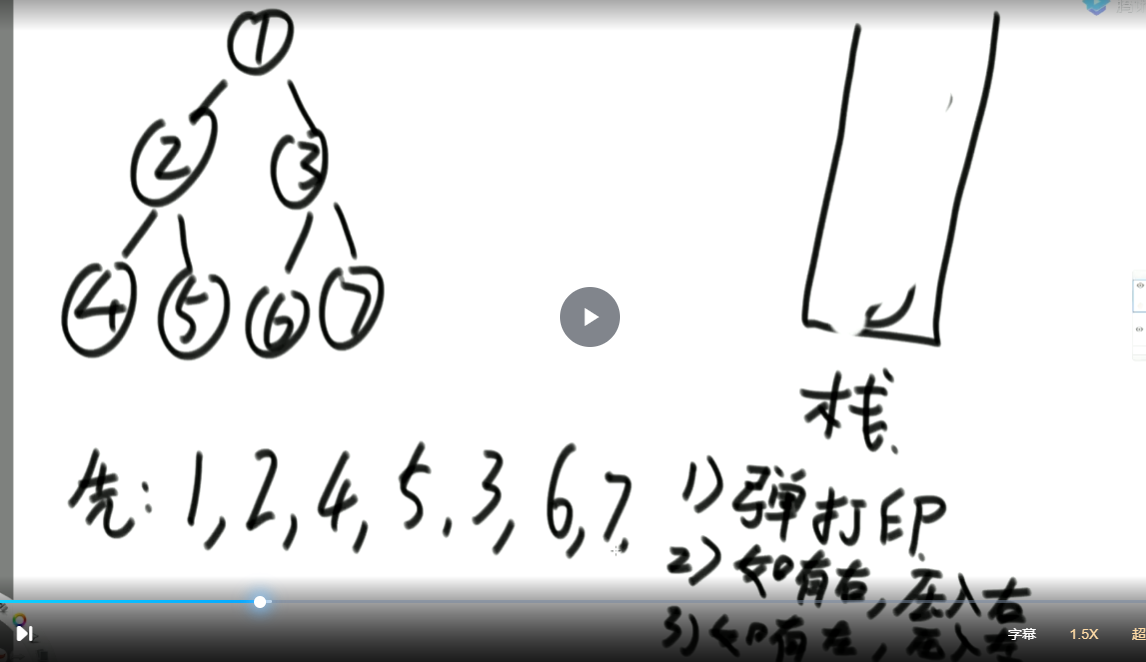 1
2 3
4 5 6 7
栈
先: 1, 2, 4, 5, 3, 6, 7
1) 弹打印
2) 如有右, 压入右
3) 如有左, 压入左
字幕 1.5X 超